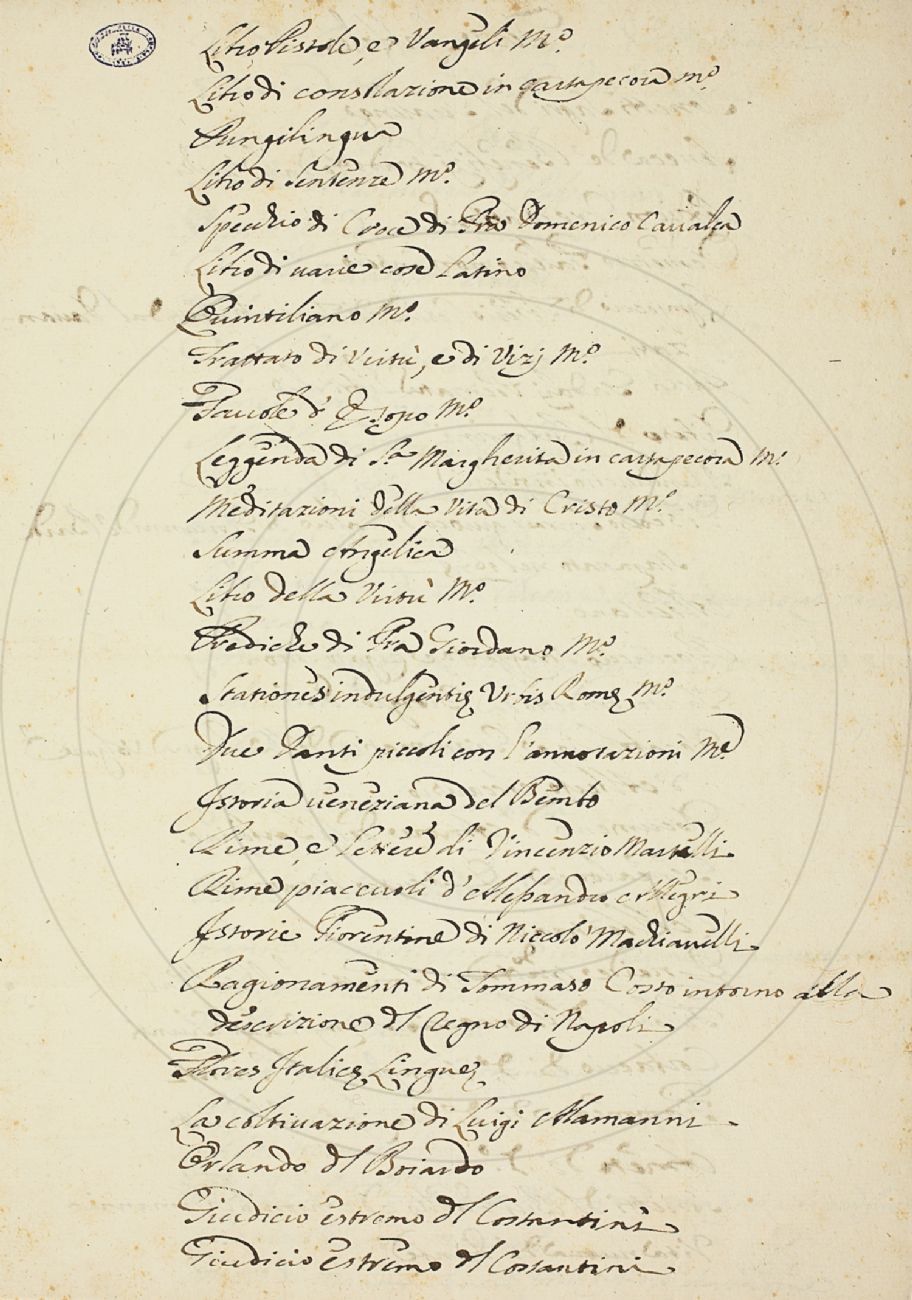 Libro Pistole, e Vangeli M.º
Libro di consolazione in cartapecora m.º
Pungilingua
Libro di Sentenze M.º
Specchio di Croce di Fra Domenico Cavalca
Libro di varie cose Latino
Quintiliano M.º
Trattato di Virtù, e di Vizj M.º
Favole d'Esopo M.º
Leggenda di S.ª Margherita in cartapecora M.º
Meditazioni della Vita di Cristo M.º
Summa Angelica
Libro della Virtù M.º
Prediche di Fra Giordano M.º
Stationes indulgentię Urbis Romę M.º
Due Danti piccoli con l'annotazioni
Istoria veneziana del Bembo
Rime, e Lettere di Vincenzio Martelli
Rime piacevoli d'Alessandro Allegri
Istorie Fiorentine di Niccolò Machiavelli
Ragionamenti di Tommaso Costo intorno alla
descrizione del Regno di Napoli
Flores Italicę Linguę
La coltivazione di Luigi Alamanni
Orlando del Boiardo
Giudicio estremo del Costantini
Giudicio estremo del Costantini